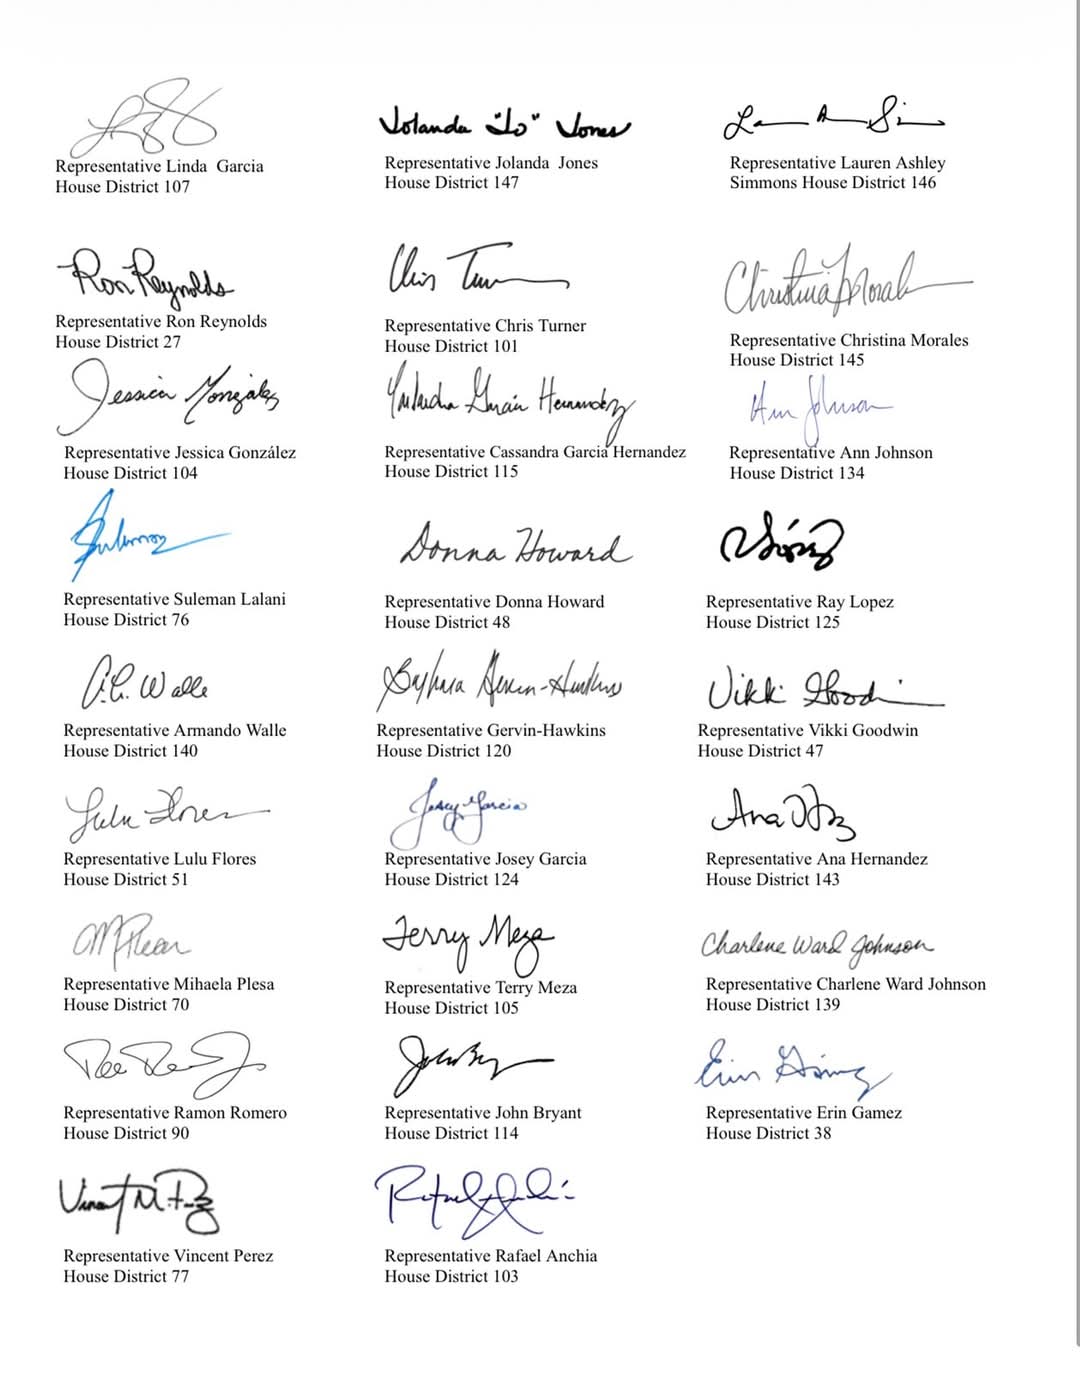 Jolanda "Jo" Jones
Representative Linda Garcia
House District 107
Representative Jolanda Jones
House District 147
Representative Lauren Ashley
Simmons House District 146
Ron Reynolds
Chris Turner
Christina Morales
Representative Ron Reynolds
House District 27
Representative Chris Turner
House District 101
Representative Christina Morales
House District 145
Jessica González
Garcia Hernandez
Ann Johnson
Representative Jessica González
House District 104
Representative Cassandra Garcia Hernandez
House District 115
Representative Ann Johnson
House District 134
Donna Howard
Representative Suleman Lalani
House District 76
Representative Donna Howard
House District 48
Representative Ray Lopez
House District 125
A.C. Walle
Gervin-Hawkins
Vikki Goodwin
Representative Armando Walle
House District 140
Representative Gervin-Hawkins
House District 120
Representative Vikki Goodwin
House District 47
Lulu Flores
Josey Garcia
Ana
Representative Lulu Flores
House District 51
Representative Josey Garcia
House District 124
Representative Ana Hernandez
House District 143
Terry Meza
Charlene Ward Johnson
Representative Mihaela Plesa
House District 70
Representative Terry Meza
House District 105
Representative Charlene Ward Johnson
House District 139
Erin Gámez
Representative Ramon Romero
House District 90
Representative John Bryant
House District 114
Representative Erin Gamez
House District 38
Representative Vincent Perez
House District 77
Representative Rafael Anchia
House District 103